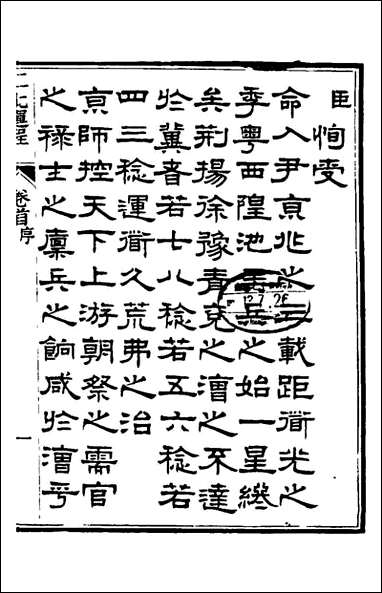 臣恂受
命入尹亰兆之三載距衜光之
季粤西隍池弄兵之始一星
矣荆揚徐豫青兗之漕之不達
於冀者若七八稔若五六稔若
四三稔運衜久荒弗之治
亰師控天下上游朝祭之需官
之祿士之稟兵之餉咸於漕乎
江北運程
卷首序
一